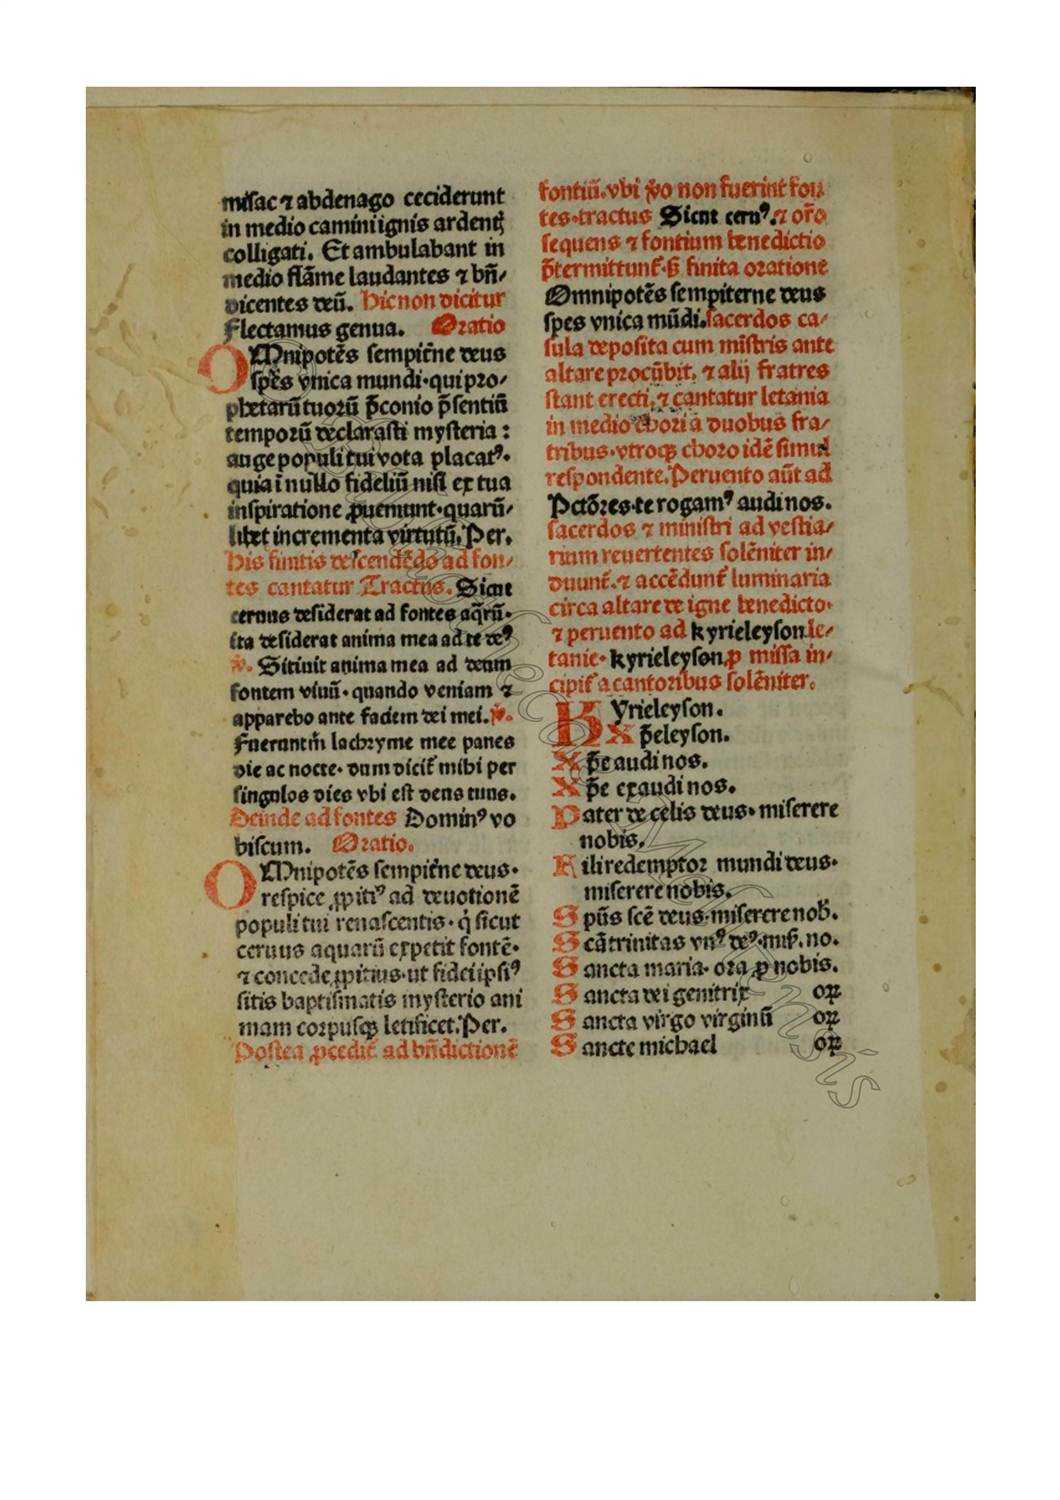 misac ⁊ abdenago ceciderunt
in medio camini ignis ardentꝭ
colligati. Et ambulabant in
medio flāme laudantes ⁊ bn̄/
dicentes deū. Hic non dicitur
Flectamus genua. Oratio
OMnipotēs sempit̾ne deus
spēs vnica mundi·qui pro/
phetarū tuorū p̄conio p̄sentiū
temporū declarasti mysteria:
auge populi tui vota placatꝰ.
quia ī nullo fideliū nisi ex tua
inspiratione ꝓueniunt·quarū/
libet incrementa virtutū. Per.
His finitis descendēdo ad fon/
tes cantatur Tractus. Sicut
ceruus desiderat ad fontes aq̄rū·
ita desiderat anima mea ad te deꝰ
℣. Sitiuit anima mea ad deum
fontem viuū· quando veniam ⁊
apparebo ante faciem dei mei. ℣.
Fuerunt m̄ lachryme mee panes
die ac nocte· dum dicit̾ mihi per
singulos dies vbi est deus tuus.
Deinde ad fontes Dominꝰ vo
biscum. Oratio.
OMnipotēs sempit̾ne deus·
respice ꝓpitiꝰ ad deuotionē
populi tui renascentis· q̇ sicut
ceruus aquarū expetit fontē·
⁊ concede ꝓpitius·ut fidei ipsiꝰ
sitis baptismatis mysterio ani
mam corpusqꝫ letificet. Per.
Postea ꝓcedit̾ ad bn̄dictionē
fontiū. vbi ꝟo non fuerint fon
tes·tractus Sicut ceruꝰ. ⁊ or̄o
sequens ⁊ fontium benedictio
p̄termittunt̾· finita oratione
Omnipotēs sempiterne deus
spes vnica mūdi. sacerdos ca/
sula deposita cum mīstris ante
altare procūbit. ⁊ alij fratres
stant erecti. ⁊ cantatur letania
in medio chori a duobus fra/
tribus·vtroqꝫ choro idē simul
respondente. Peruento aūt ad
Pctōres·te rogamꝰ audi nos.
sacerdos ⁊ ministri ad vestia/
rium reuertentes solēniter in/
duunt̾. ⁊ accēdunt̾ luminaria
circa altare de igne benedicto·
⁊ peruento ad kyrieleyson le/
tanie· kyrieleyson ꝓ missa in/
cipit̾ a cantoribus solēniter.
KYrieleyson.
Xp̄eleyson.
Xp̄e audi nos.
Xp̄e exaudi nos.
Pater de celis deus· miserere
nobis.
Fili redemptor mundi deus·
miserere nobis.
Spūs scē deus·miserere nob̄.
Scā trinitas vnꝰ deꝰ·mis̄. no.
Sancta maria· ora ꝓ nobis.
Sancta dei genitrix oꝝ
Sancta virgo virginū oꝝ
Sancte michael oꝝ